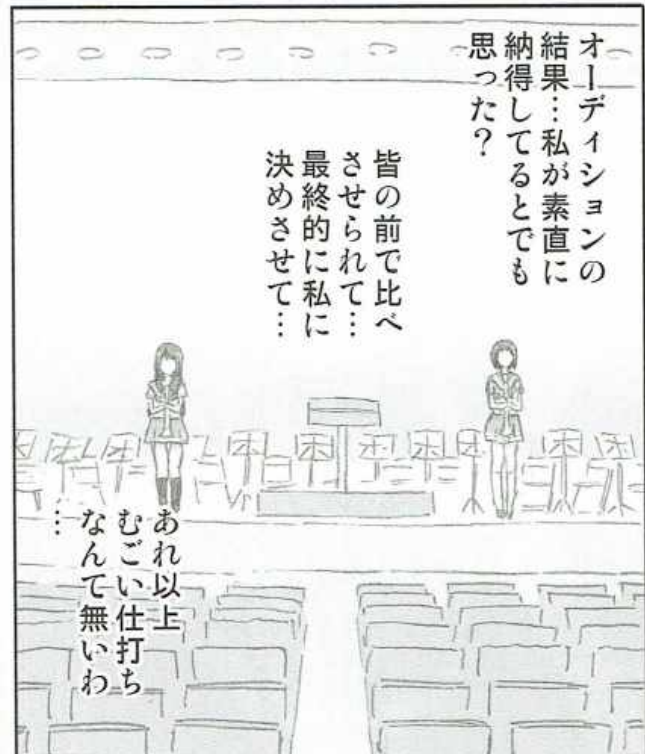 オーディションの
結果…私が素直に
納得してるとでも
思った？
皆の前で比べ
させられて…
最終的に私に
決めさせて…
あれ以上
むごい仕打ち
なんて無いわ
…